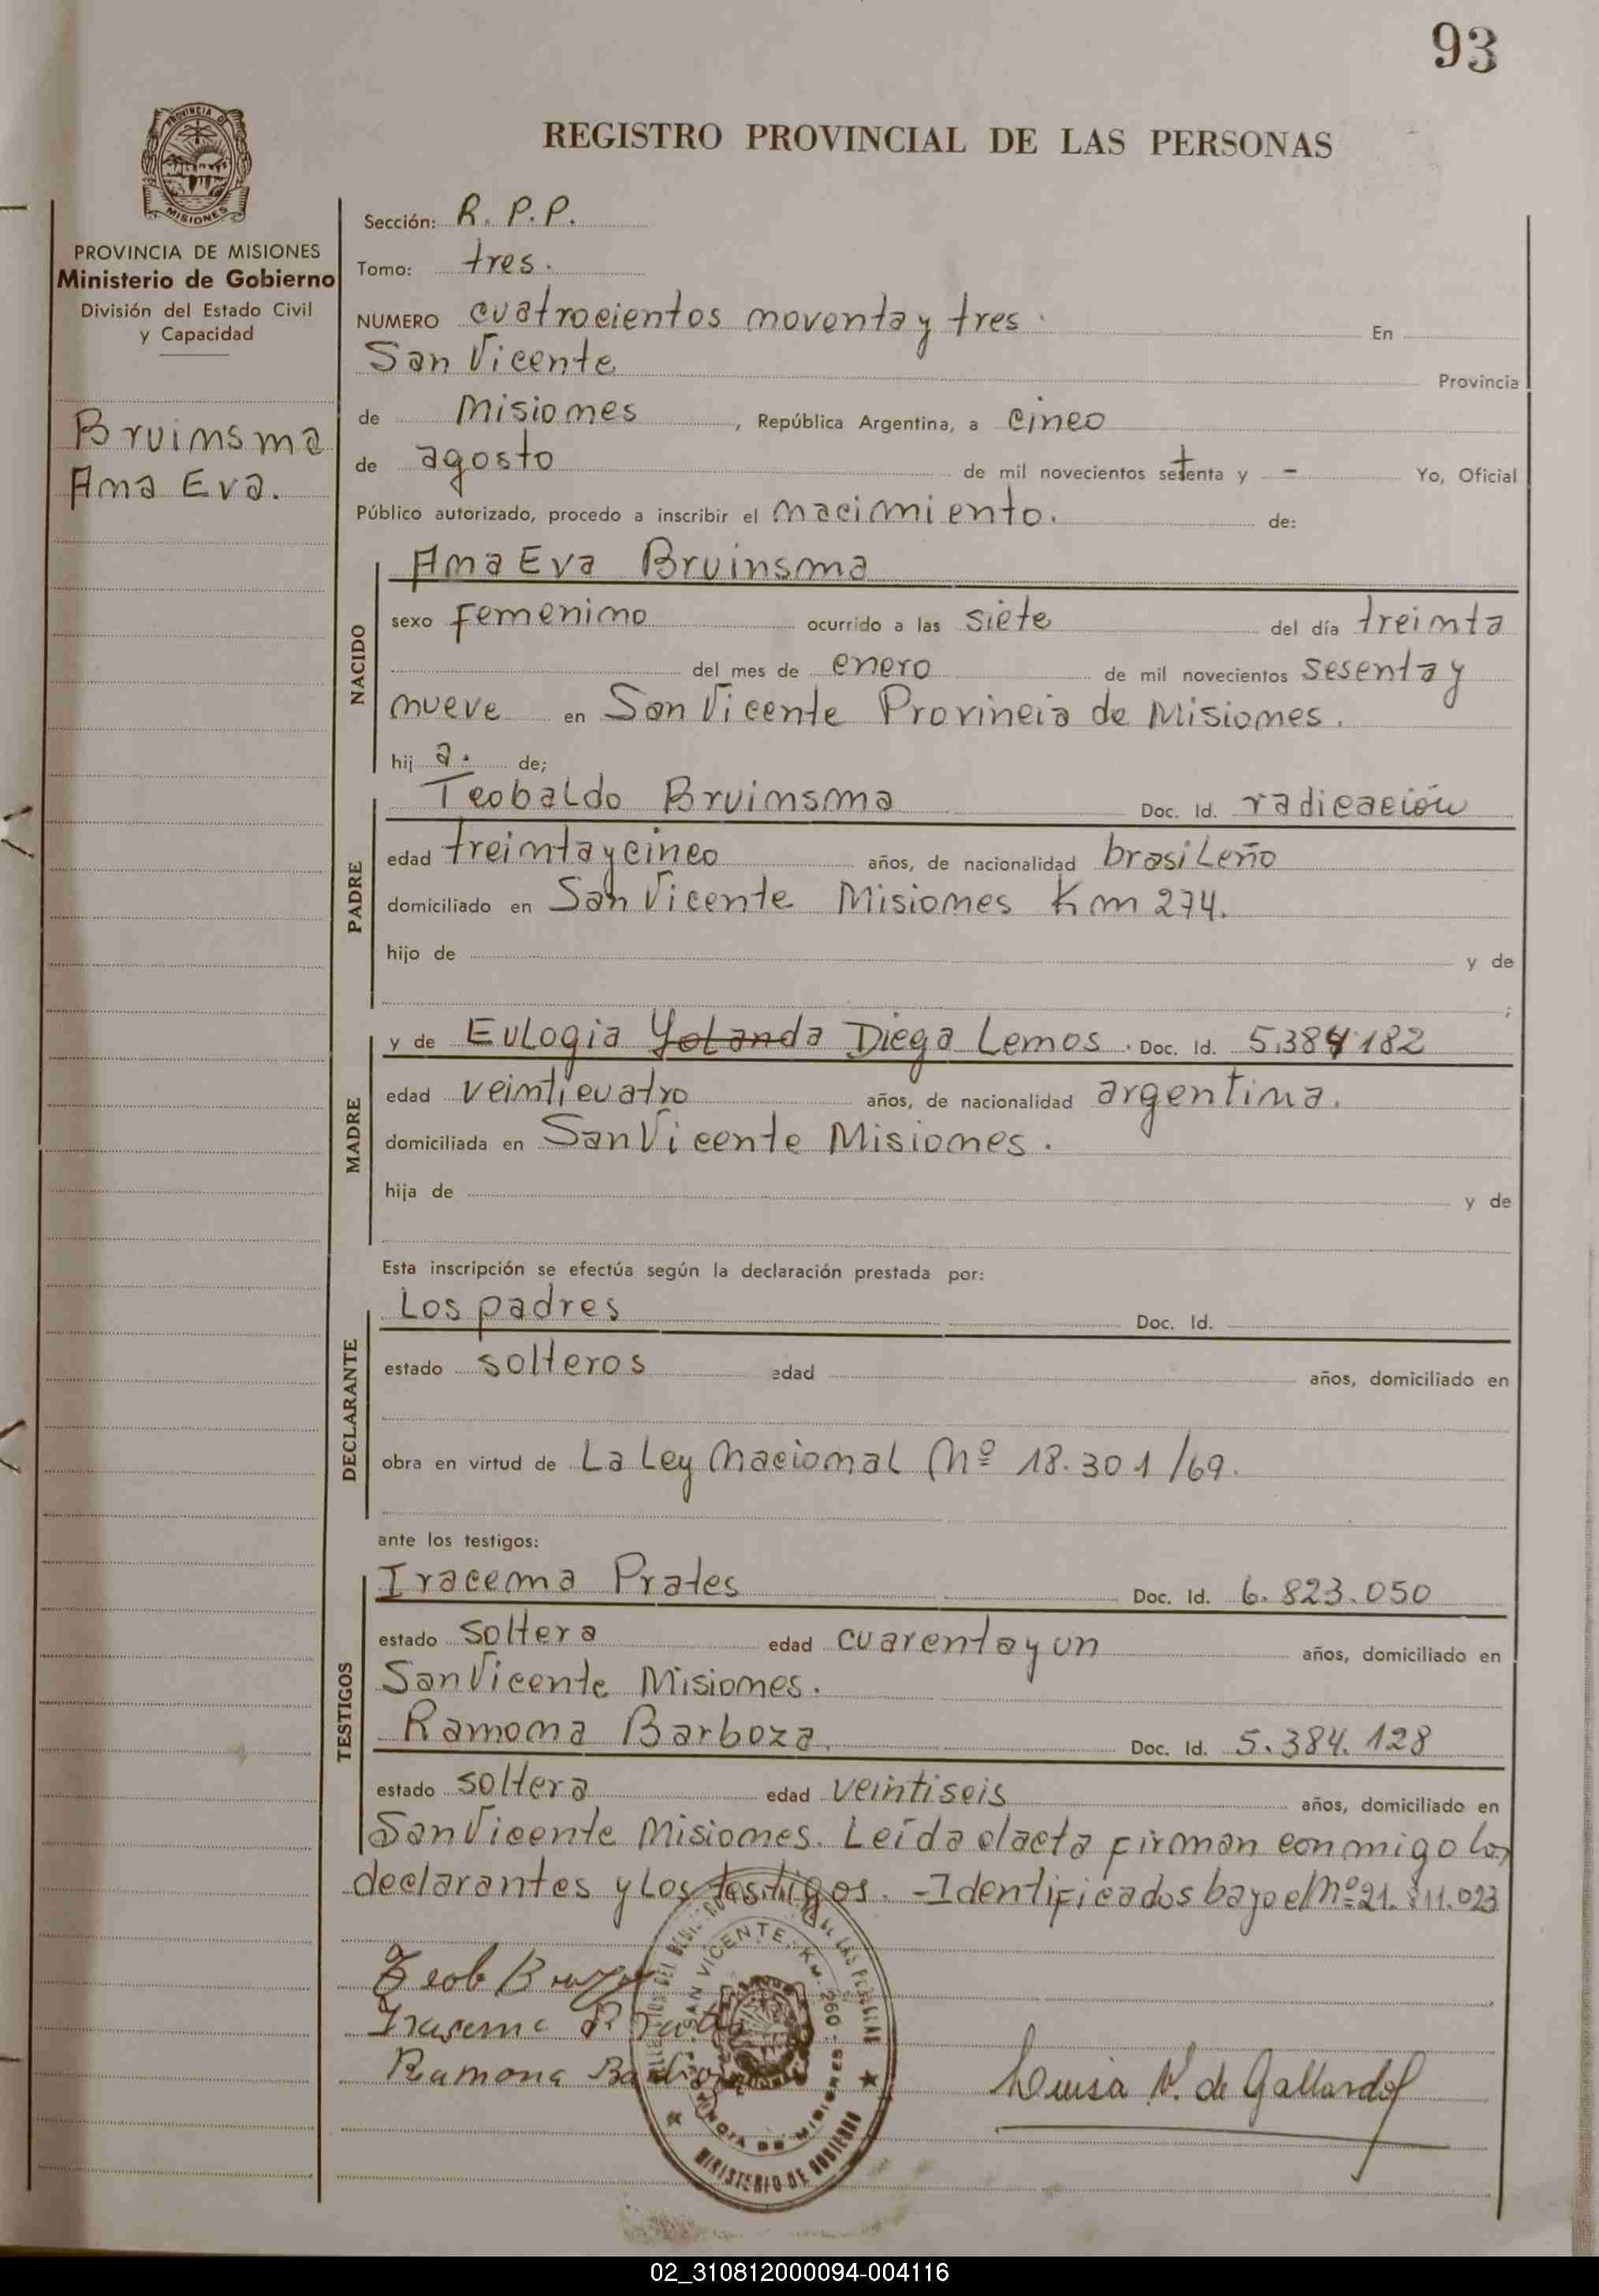 93
PROVINCIA DE
MISIONES
REGISTRO PROVINCIAL DE LAS PERSONAS
PROVINCIA DE MISIONES
Ministerio de Gobierno
División del Estado Civil
y Capacidad
Bruinsma
Ana Eva.
Sección: R. P. P.
Tomo: tres.
NUMERO cuatrocientos noventa y tres. En
San Vicente Provincia
de Misiones, República Argentina, a cinco
de agosto de mil novecientos setenta y - Yo, Oficial
Público autorizado, procedo a inscribir el nacimiento. de:
NACIDO
Ana Eva Bruinsma
sexo femenino ocurrido a las siete del día treinta
del mes de enero de mil novecientos sesenta y
nueve en San Vicente Provincia de Misiones.
hij a. de;
PADRE
Teobaldo Bruinsma Doc. Id. radicación
edad treinta y cinco años, de nacionalidad brasileño
domiciliado en San Vicente Misiones Km 274.
hijo de y de
;
MADRE
y de Eulogia Yolanda Diega Lemos. Doc. Id. 5.384.182
edad veinticuatro años, de nacionalidad argentina.
domiciliada en San Vicente Misiones.
hija de y de
Esta inscripción se efectúa según la declaración prestada por:
DECLARANTE
Los padres Doc. Id.
estado solteros edad años, domiciliado en
obra en virtud de La Ley Nacional Nº 18.301/69.
ante los testigos:
TESTIGOS
Iracema Prates Doc. Id. 6.823.050
estado soltera edad cuarenta y un años, domiciliado en
San Vicente Misiones.
Ramona Barboza. Doc. Id. 5.384.128
estado soltera edad veintiseis años, domiciliado en
San Vicente Misiones. Leída el acta firman conmigo los
declarantes y los testigos. - Identificados bajo el Nº 21.811.023
Teob
Ramona
Luisa V. de Gallardo
SAN VICENTE, KM. 260 - PROVINCIA DE MISIONES
MINISTERIO DE GOBIERNO
02_310812000094-004116